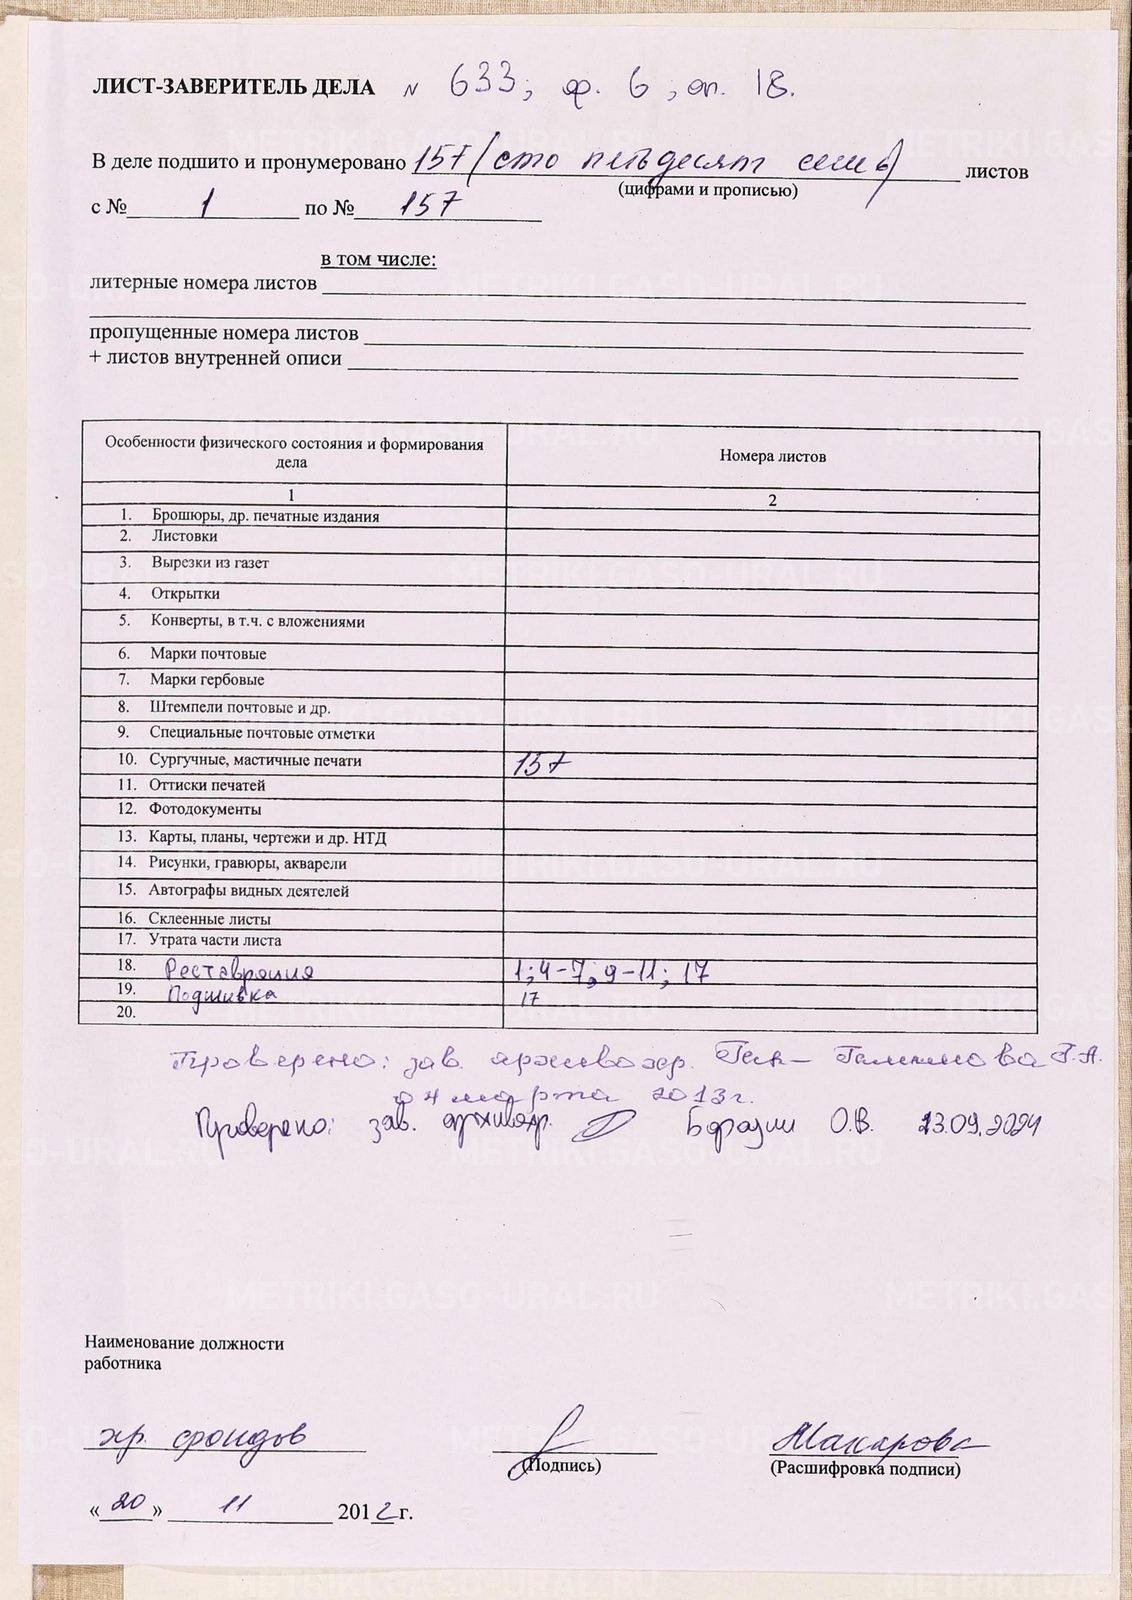 ЛИСТ-ЗАВЕРИТЕЛЬ ДЕЛА N 633; ф. 6; оп. 18.
В деле подшито и пронумеровано 157 (сто пятьдесят семь) листов
(цифрами и прописью)
с № 1 по № 157
в том числе:
литерные номера листов
пропущенные номера листов
+ листов внутренней описи
Особенности физического состояния и формирования дела Номера листов
1 2
1. Брошюры, др. печатные издания
2. Листовки
3. Вырезки из газет
4. Открытки
5. Конверты, в т.ч. с вложениями
6. Марки почтовые
7. Марки гербовые
8. Штемпели почтовые и др.
9. Специальные почтовые отметки
10. Сургучные, мастичные печати 157
11. Оттиски печатей
12. Фотодокументы
13. Карты, планы, чертежи и др. НТД
14. Рисунки, гравюры, акварели
15. Автографы видных деятелей
16. Склеенные листы
17. Утрата части листа
18. Реставрация 1; 4-7; 9-11; 17
19. Подшивка 17
20.
Проверено: зав. архивохр. Г.А.
04 марта 2013 г.
Проверено: зав. архивохр. О.В. 23.09.2024
Наименование должности
работника
хр. фондов Макарова
(Подпись) (Расшифровка подписи)
« 20 » 11 2012 г.
METRIKI.GASO-URAL.RU